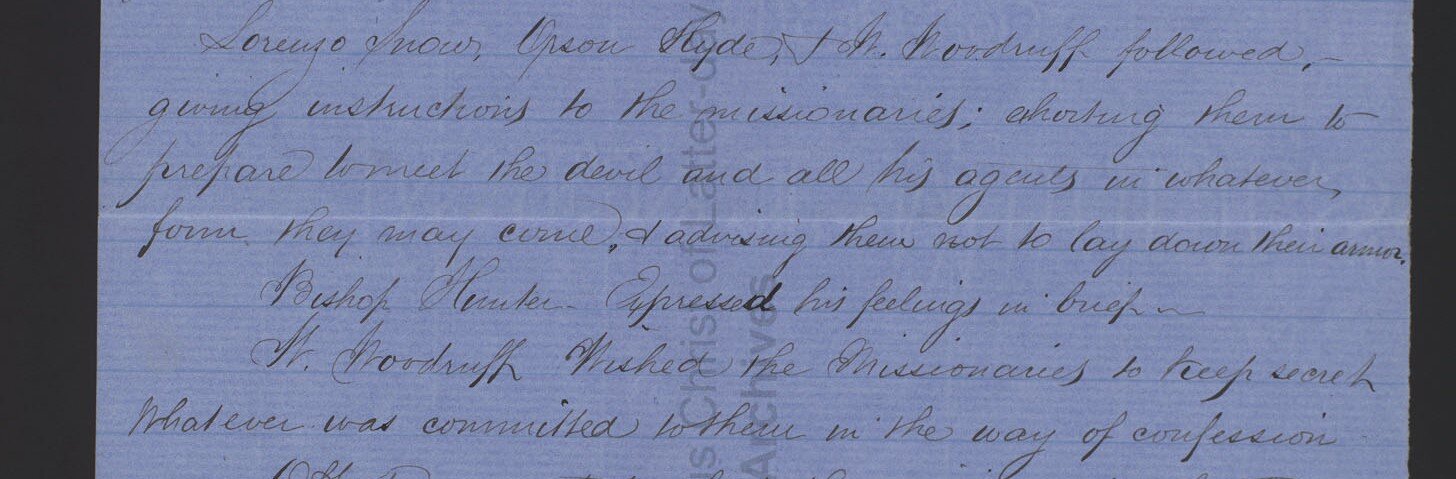 Lorenzo Snow, Orson Hyde, & W. Woodruff followed,-
giving instructions to the missionaries; ehorting them to
prepare to meet the devil and all his agents in whatever
form they may come, & advising them not to lay down their armor.
Bishop Hunter - Expressed his feelings in brief -
W. Woodruff Wished the Missionaries to keep secret
whatever was committed to them in the way of confession
us Christ of Latter-day
Archives